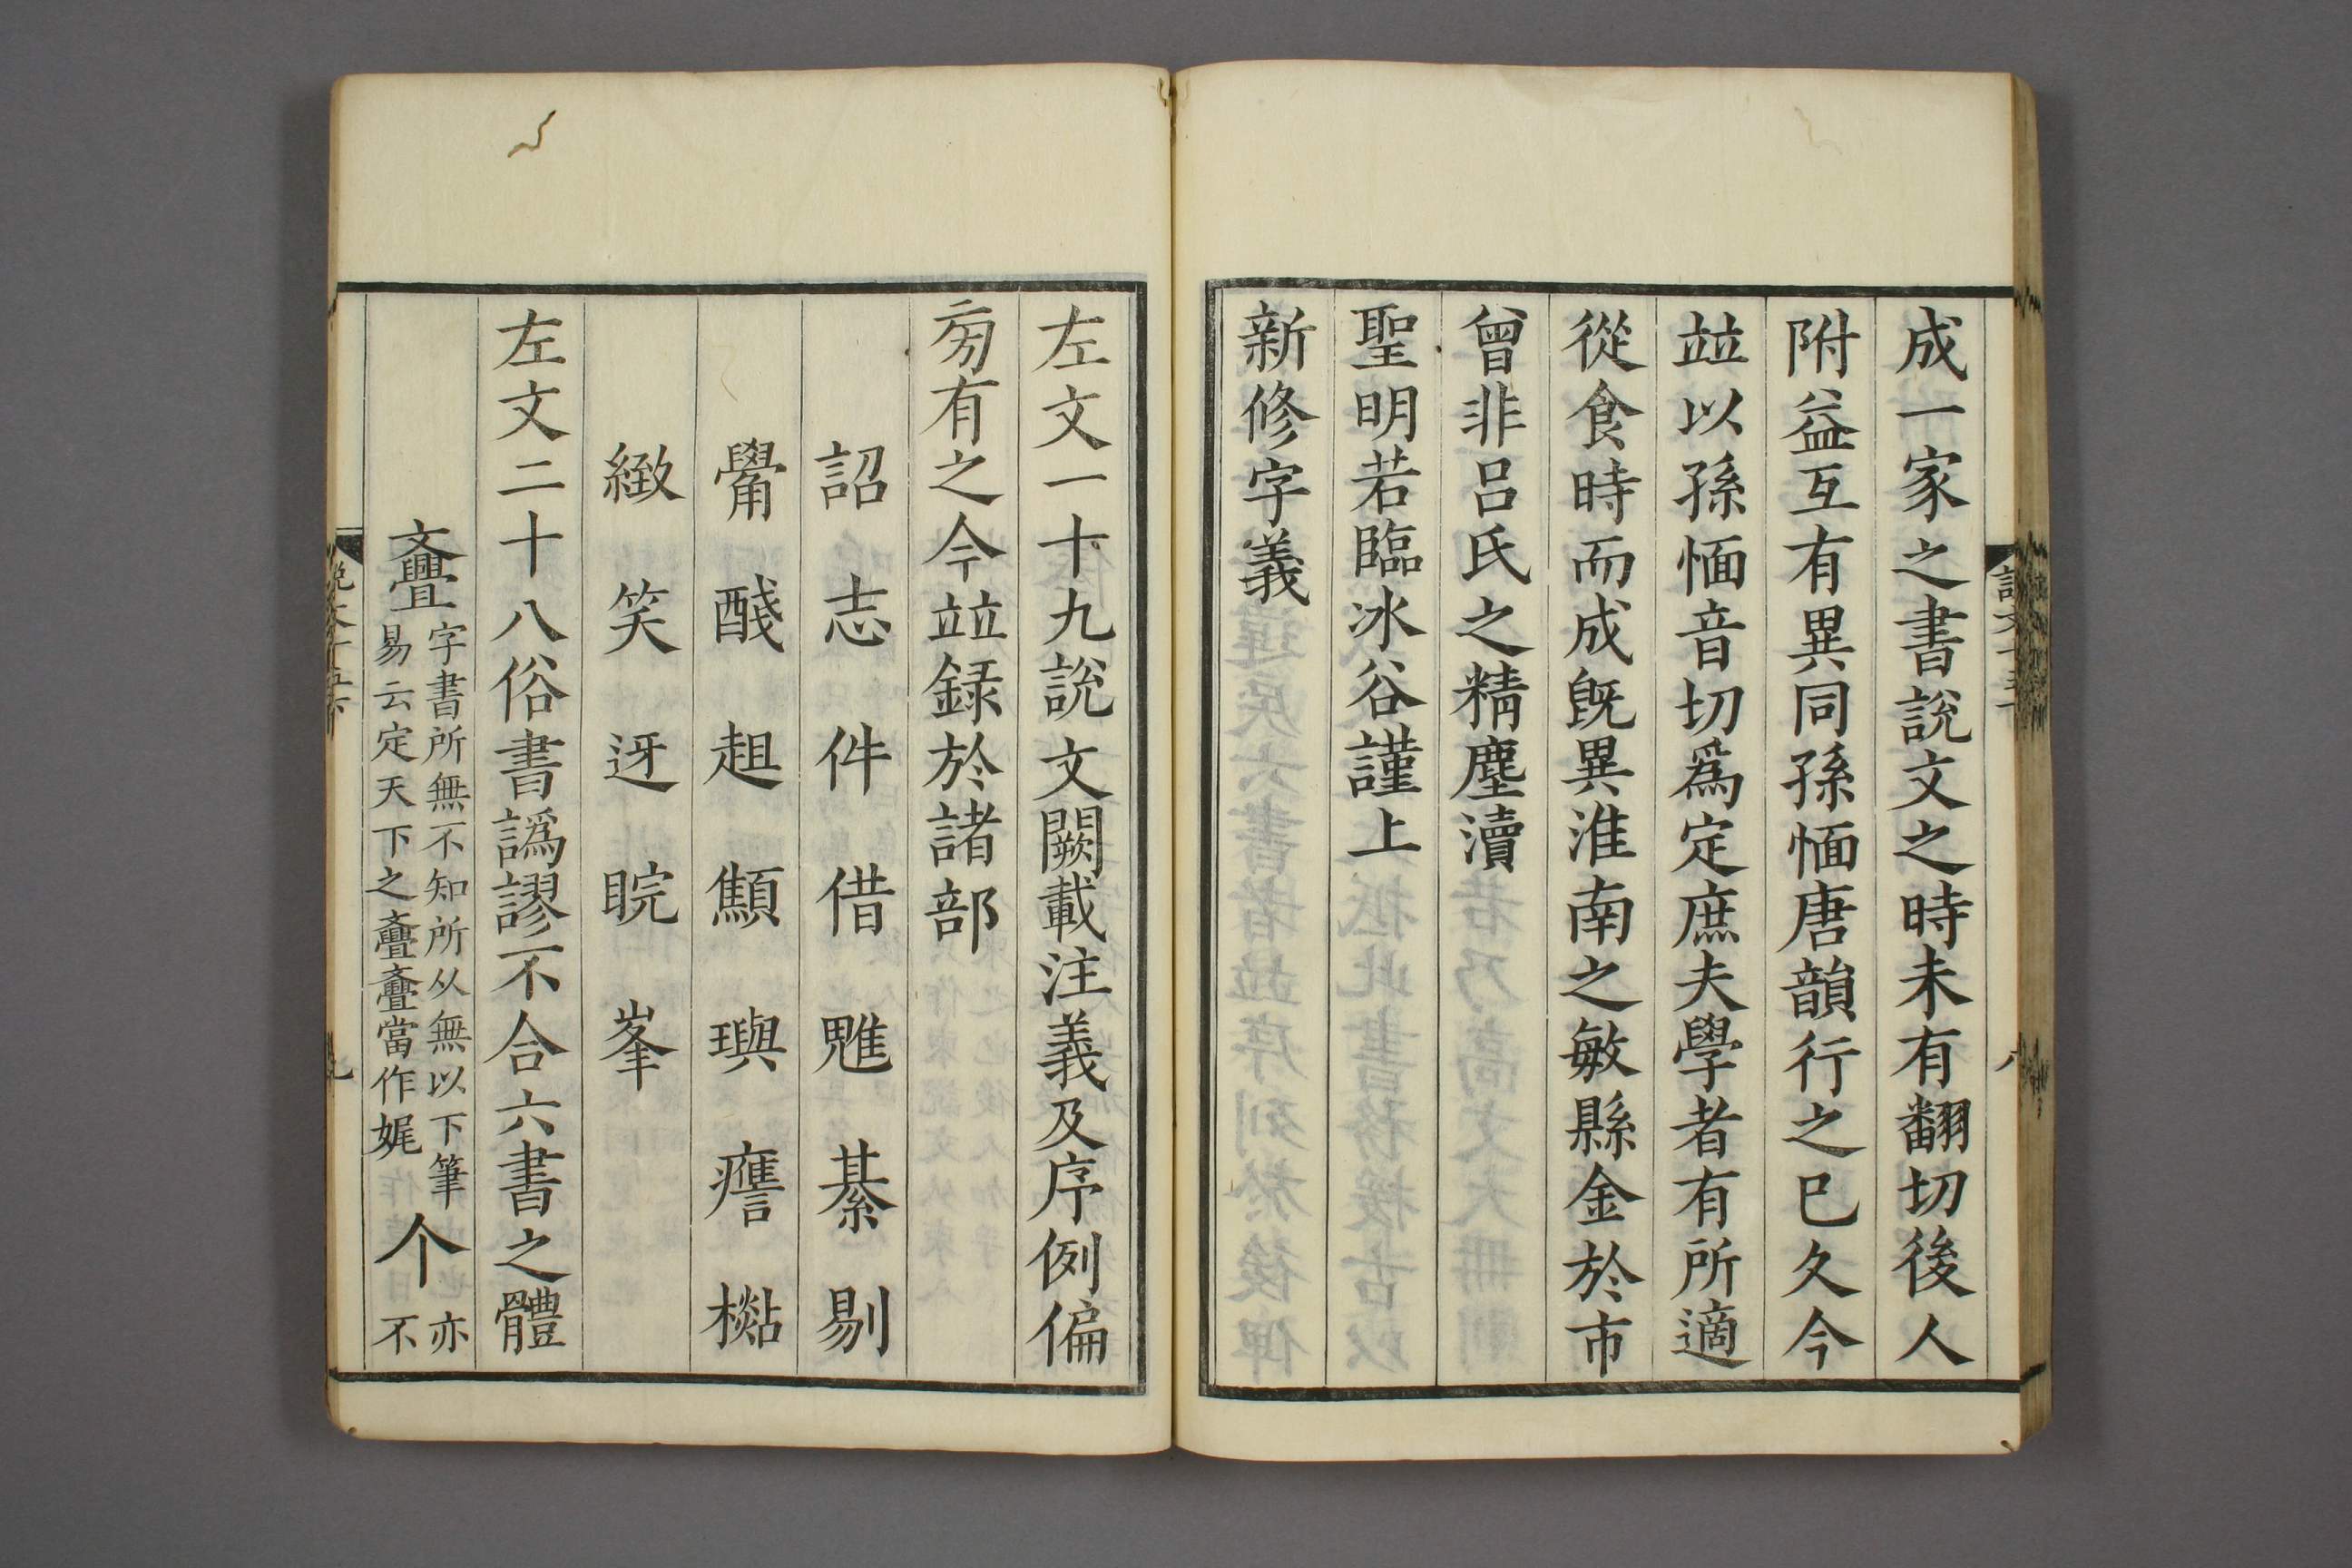 成一家之書說文之時未有翻切後人
附益互有異同孫愐唐韻行之已久今
竝以孫愐音切爲定庶夫學者有所適
從食時而成旣異淮南之敏縣金於市
曾非呂氏之精塵瀆
聖明若臨冰谷謹上
新修字義
左文一十九說文闕載注義及序例偏
㫄有之今竝録於諸部
詔志件借魋綦剔
觷醆趄顦璵譍檆
緻笑迓睆峯
左文二十八俗書譌謬不合六書之體
亹
字書所無不知所从無以下筆
易云定天下之亹亹當作娓
个
亦
不